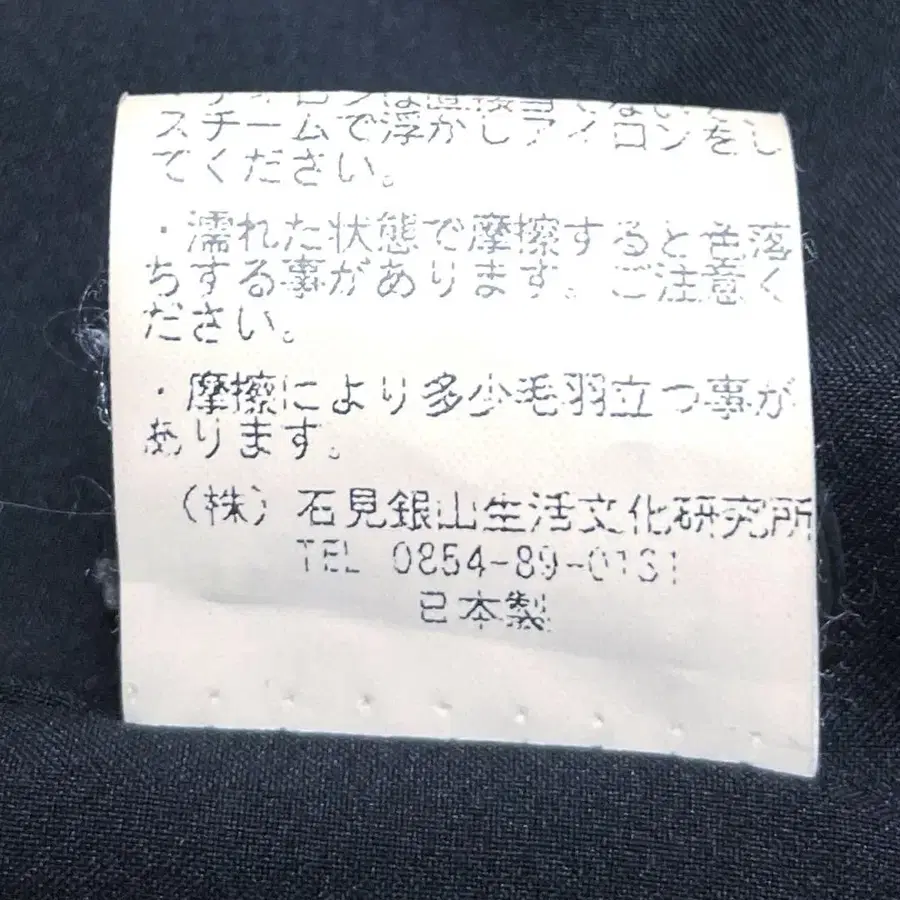 スチームで浮かしアイロンをし
てください。
・濡れた状態で摩擦すると色落
ちする事があります。ご注意く
ださい。
・摩擦により多少毛羽立つ事が
あります。
(株)石見銀山生活文化研究所
TEL 0854-89-0131
日本製